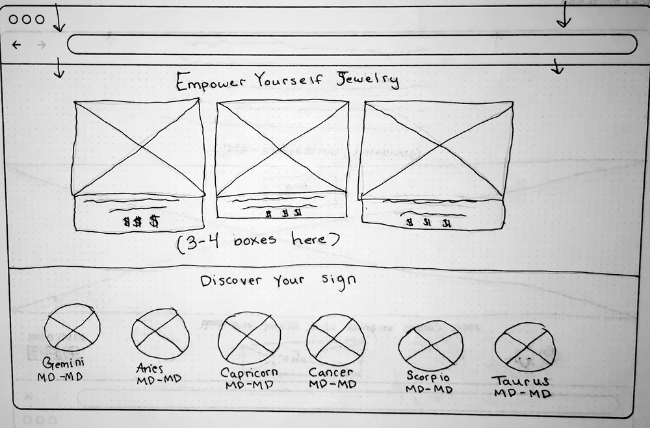 Empower Yourself Jewelry
$$$
$$$
$$$
(3-4 boxes here)
Discover Your sign
Gemini
MD-MD
Aries
MD-MD
Capricorn
MD-MD
Cancer
MD-MD
Scorpio
MD-MD
Taurus
MD-MD